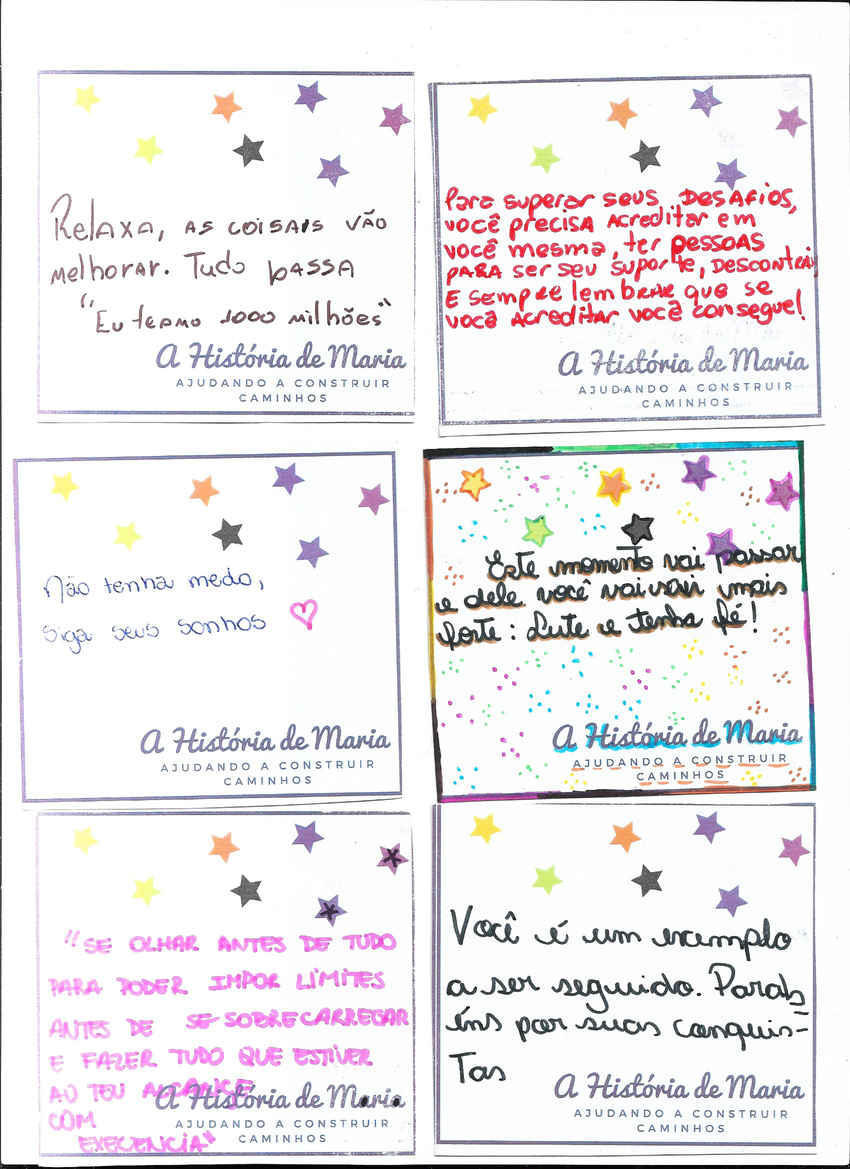 Relaxa, as coisas vão
melhorar. Tudo passa
"Eu teamo 1000 milhões"
A História de Maria
AJUDANDO A CONSTRUIR
CAMINHOS
Para superar seus DESAFIOS,
você precisa acreditar em
você mesma, ter pessoas
para ser seu suporte, descontrair
E sempre lembrar que se
você acreditar você consegue!
A História de Maria
AJUDANDO A CONSTRUIR
CAMINHOS
Não tenha medo,
siga seus sonhos
A História de Maria
AJUDANDO A CONSTRUIR
CAMINHOS
Este momento vai passar
e dele você vai sair mais
forte: Lute e tenha fé!
A História de Maria
AJUDANDO A CONSTRUIR
CAMINHOS
"SE OLHAR ANTES DE TUDO
PARA PODER IMPOR LÍMITES
ANTES DE SE SOBRECARREGAR
E FAZER TUDO QUE ESTIVER
AO TEU ALCANCE
COM
EXECENCIA"
A História de Maria
AJUDANDO A CONSTRUIR
CAMINHOS
Você é um exemplo
a ser seguido. Parab
éns por suas conquis-
Tas
A História de Maria
AJUDANDO A CONSTRUIR
CAMINHOS